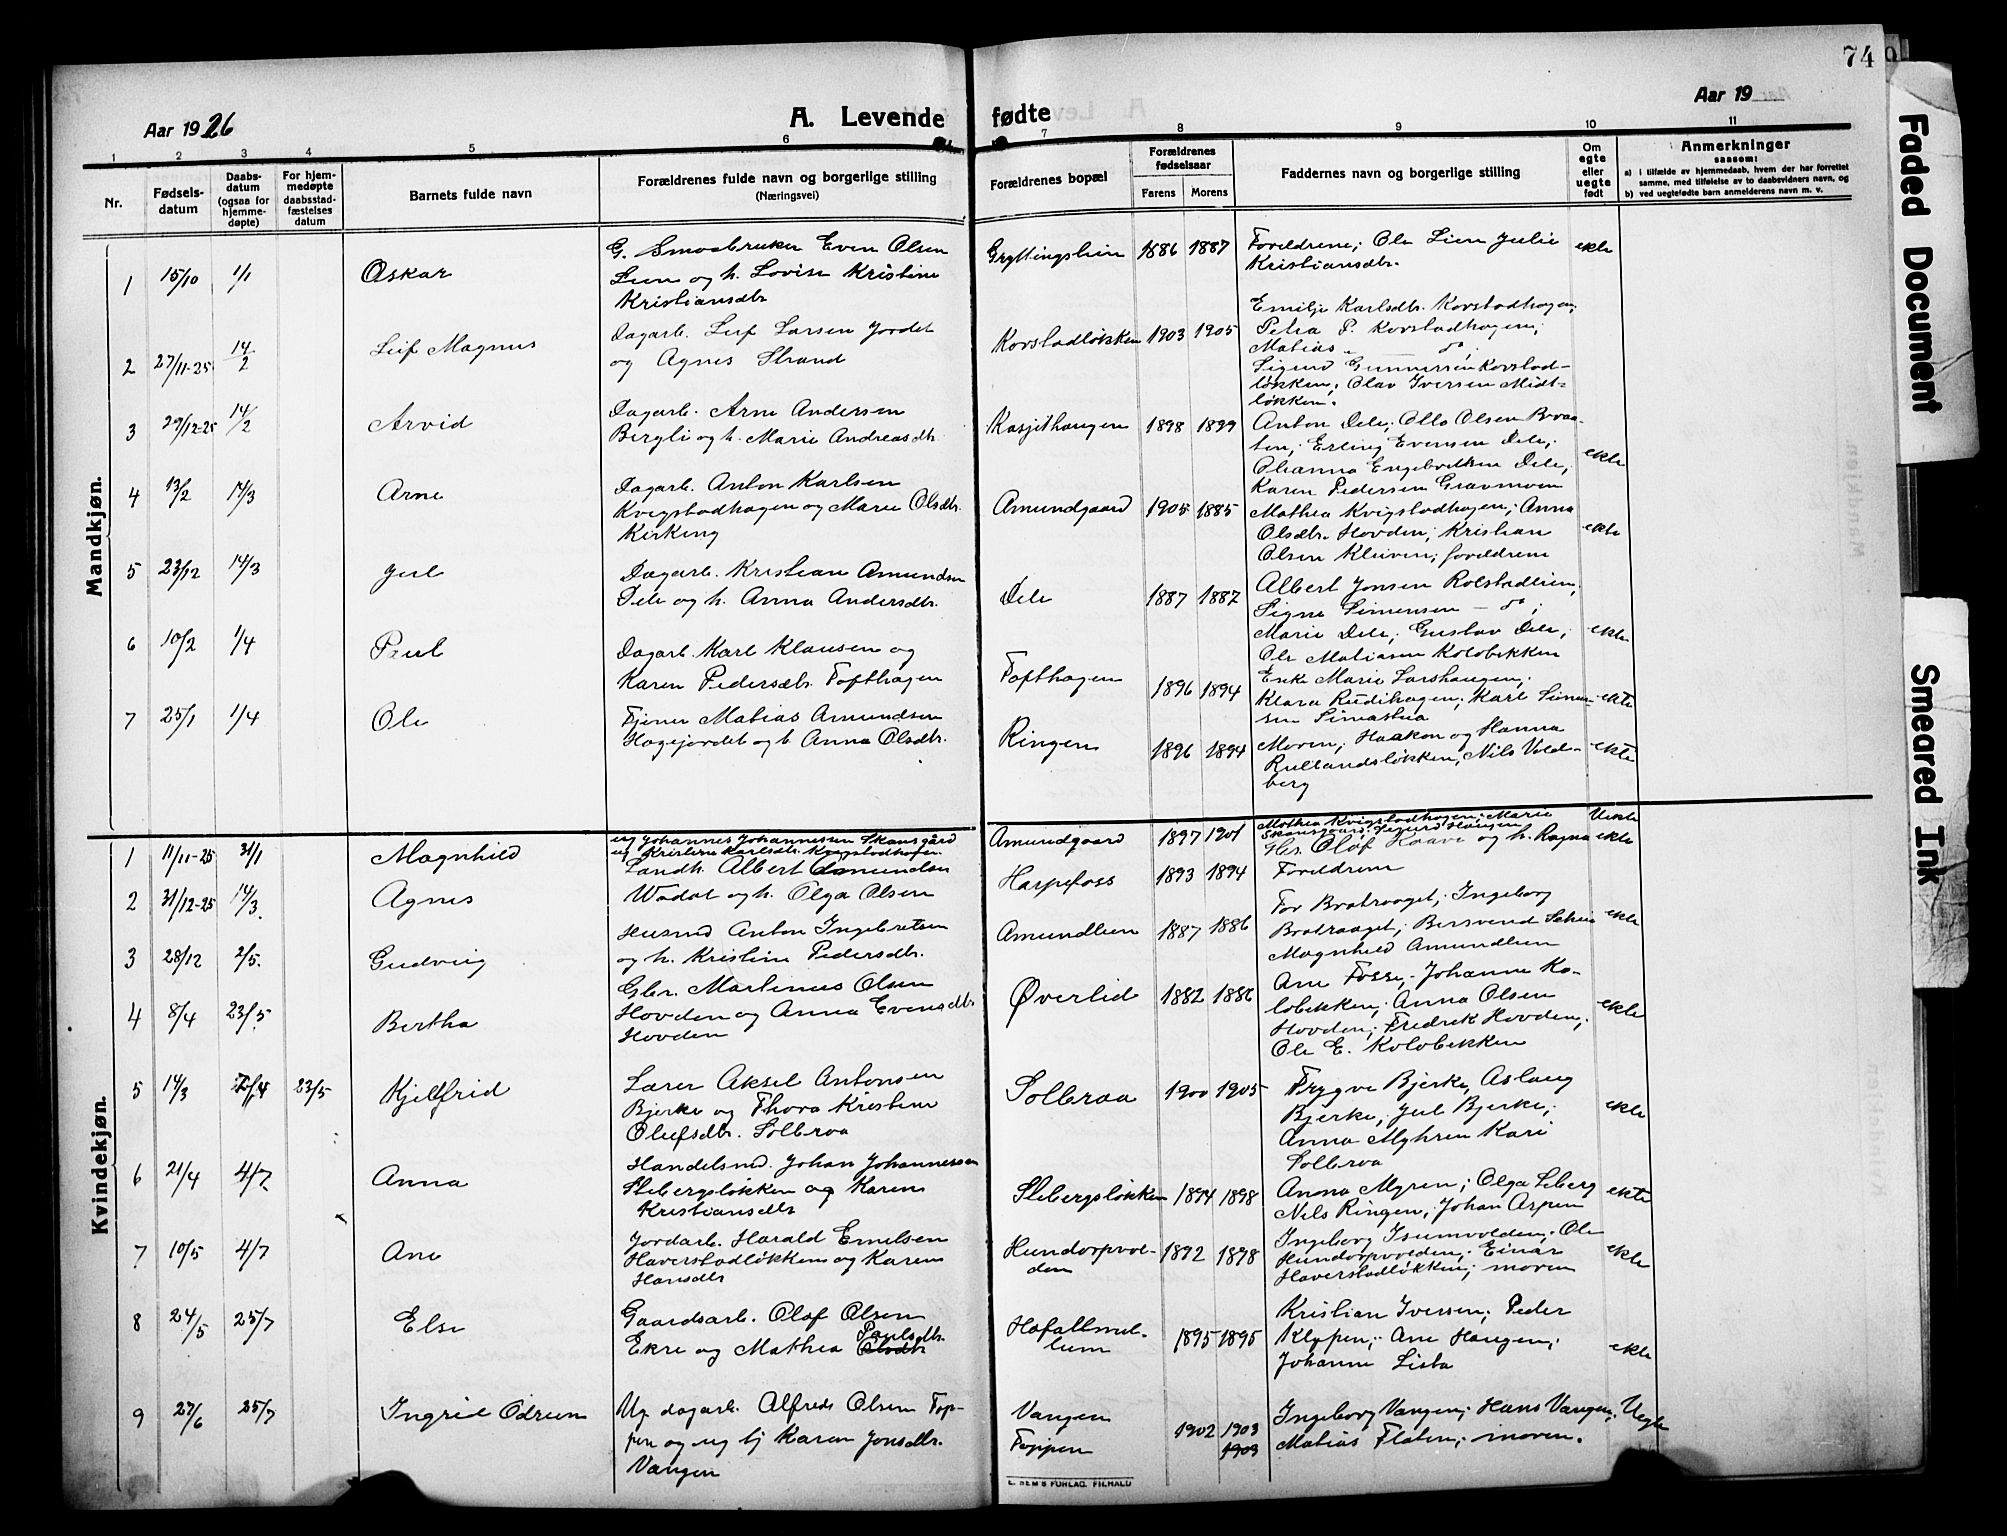 74
Aar 1926
A. Levende fødte
Aar 19
1 2 3 4 5 6 7 8 9 10 11
Nr.
Fødsels-
datum
Daabs-
datum
(ogsaa for
hjemme-
døpte)
For hjem-
medøpte
daabsstad-
fæstelses
datum
Barnets fulde navn
Forældrenes fulde navn og borgerlige stilling
(Næringsvei)
Forældrenes bopæl
Forældrenes
fødselsaar
Farens Morens
Faddernes navn og borgerlige stilling
Om
egte
eller
uegte
født
Anmerkninger
saasom:
a) i tilfælde av hjemmedaab, hvem der har forrettet
samme, med tilføielse av to daabsvidners navn, og
b) ved uegtefødte barn anmelderens navn m. v.
Mandkjøn.
1 15/10 1/1 Oskar
G. Smaabruker Even Olsen
Lien og h. Lovise Kristine
Kristiansdtr
Gryttingslien 1886 1887
Foreldrene; Ole Lien Julie
Kristiansdtr.
ekte
2 27/11-25 14/2 Leif Magnus
Dagarb. Leif Larsen Jordet
og Agnes Strand
Korstadløkken 1903 1905
Emilje Karlsdtr. Korstadhagen;
Petra P. Korstadhagen;
Matias " do;
Sigurd Gunnersen Korstad-
løkken; Olav Iversen Midt-
løkken.
3 29/12-25 14/2 Arvid
Dagarb. Arne Andersen
Bergli og h. Marie Andreasdtr.
1898 1899
Anton Dele; Otto Olsen Braa-
ten; Erling Evensen Dele;
Oleanna Engebretsen Dele;
Karen Pedersen Gravmoen
ekte
4 13/2 14/3 Arne
Dagarb. Anton Karlsen
Kvigstadhagen og Marie Olsdtr.
Kirking
Amundgaard 1905 1885
Mathea Kvigstadhagen; Anna
Olsdtr. Hovden; Kristian
Olsen Kleiven; foreldrene
ekte
5 23/12 14/3 Jul
Dagarb. Kristian Amundsen
Dele og h. Anna Andersdtr.
Dele 1887 1887
Albert Jonsen Rolstadlien;
Signe Simensen - do;
Marie Dele; Gustav Dele;
Ole Matiasen Kolobekken
ekte
6 10/2 1/4 Paul
Dagarb. Karl Klausen og
Karen Pedersdtr. Tofthagen
Tofthagen 1896 1894
Enke Marie Larshaugen;
Klara Rudihagen; Karl Simen-
sen Simastua
ekte
7 25/1 1/4 Ole
Tjener Matias Amundsen
Hagejordet og h. Anna Olsdtr.
Ringen 1896 1894
Moren; Haakon og Hanna
Rullandsløkken, Nils Vold-
berg
ekte
Kvindekjøn.
1 11/11-25 31/1 Magnhild
ug Johannes Johannessen Skansgård
ug Kristine Karlsdtr. Kvigstadhagen
Amundgaard 1897 1901
Mathea Kvigstadhagen; Marie
Skansgaard; Sigurd Haugen
Uekte
2 31/12-25 14/3. Agnes
Landh. Albert Amundsen
Wadat og h. Olga Olsen
Harpefoss 1893 1894
Gbr. Olof Haave og h. Ragna
Foreldrene
ekte
3 28/12 2/5. Gudveig
Husmd Anton Ingebretsen
og h. Kristine Pedersdtr.
Amundlien 1887 1886
Tor Bratraaget; Ingeborg
Bratraaget; Bersvend
Magnhild Amundlien
ekte
4 8/4 23/5. Bertha
Gbr. Martinus Olsen
Hovden og Anna Evensdtr
Hovden
Øverlid 1882 1886
Ane Fosse; Johanne Ko-
lobekken; Anna Olsen
Hovden; Fredrik Hovden;
Ole E. Kolobekken
ekte
5 14/3 23/5 Kjelfrid
Lærer Aksel Antonsen
Bjerke og Thora Kristine
Olufsdtr. Solbraa
Solbraa 1900 1905
Trygve Bjerke, Aslaug
Bjerke, Jul Bjerke;
Anna Myhren Kari
Solbraa
ekte
6 21/4 4/7 Anna
Handelsmd. Johan Johannessen
Slebergsløkken og Karen
Kristiansdtr
Slebergsløkken 1894 1898
Anna Myren; Olga Sleberg
Nils Ringen; Johan Aspen
ekte
7 10/5 4/7 Ane
Jordarb. Harald Emilsen
Haverstadløkken og Karen
Hansdtr
Hundorpvol-
den 1892 1898
Ingeborg Isumvolden; Ole
Hundorpvolden; Einar
Haverstadløkken; moren
ekte
8 24/5 25/7 Else
Gaardsarb. Olaf Olsen
Ekre og Mathea Paulsdtr. Olsdtr
1895 1895
Kristian Iversen; Peder
Klypen; Ane Haugen;
Johanne Lista
ekte
9 27/6 25/7 Ingrid Odrun
Ug. dagarb. Alfred Olsen Top-
pen og ug bj Karen Jonsdtr.
Vangen
Vangen
Toppen 1902 1903
1909
Ingeborg Vangen; Hans Vangen;
Matias Flaten; moren.
Uegte
E. SEM'S FORLAG. FR.HALD
Faded Document
Smeared Ink